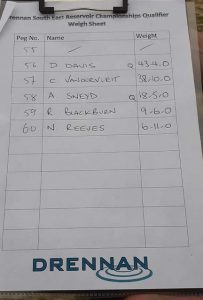 Drennan South East Reservoir Championships Qualifier
Weigh Sheet
Peg No. Name Weight
55 / /
56 D DAVIS Q 43-4-0
57 C VANDERVLIET 38-10-0
58 A SNEYD Q 18-5-0
59 R BLACKBURN 9-6-0
60 N REEVES 6-11-0
DRENNAN